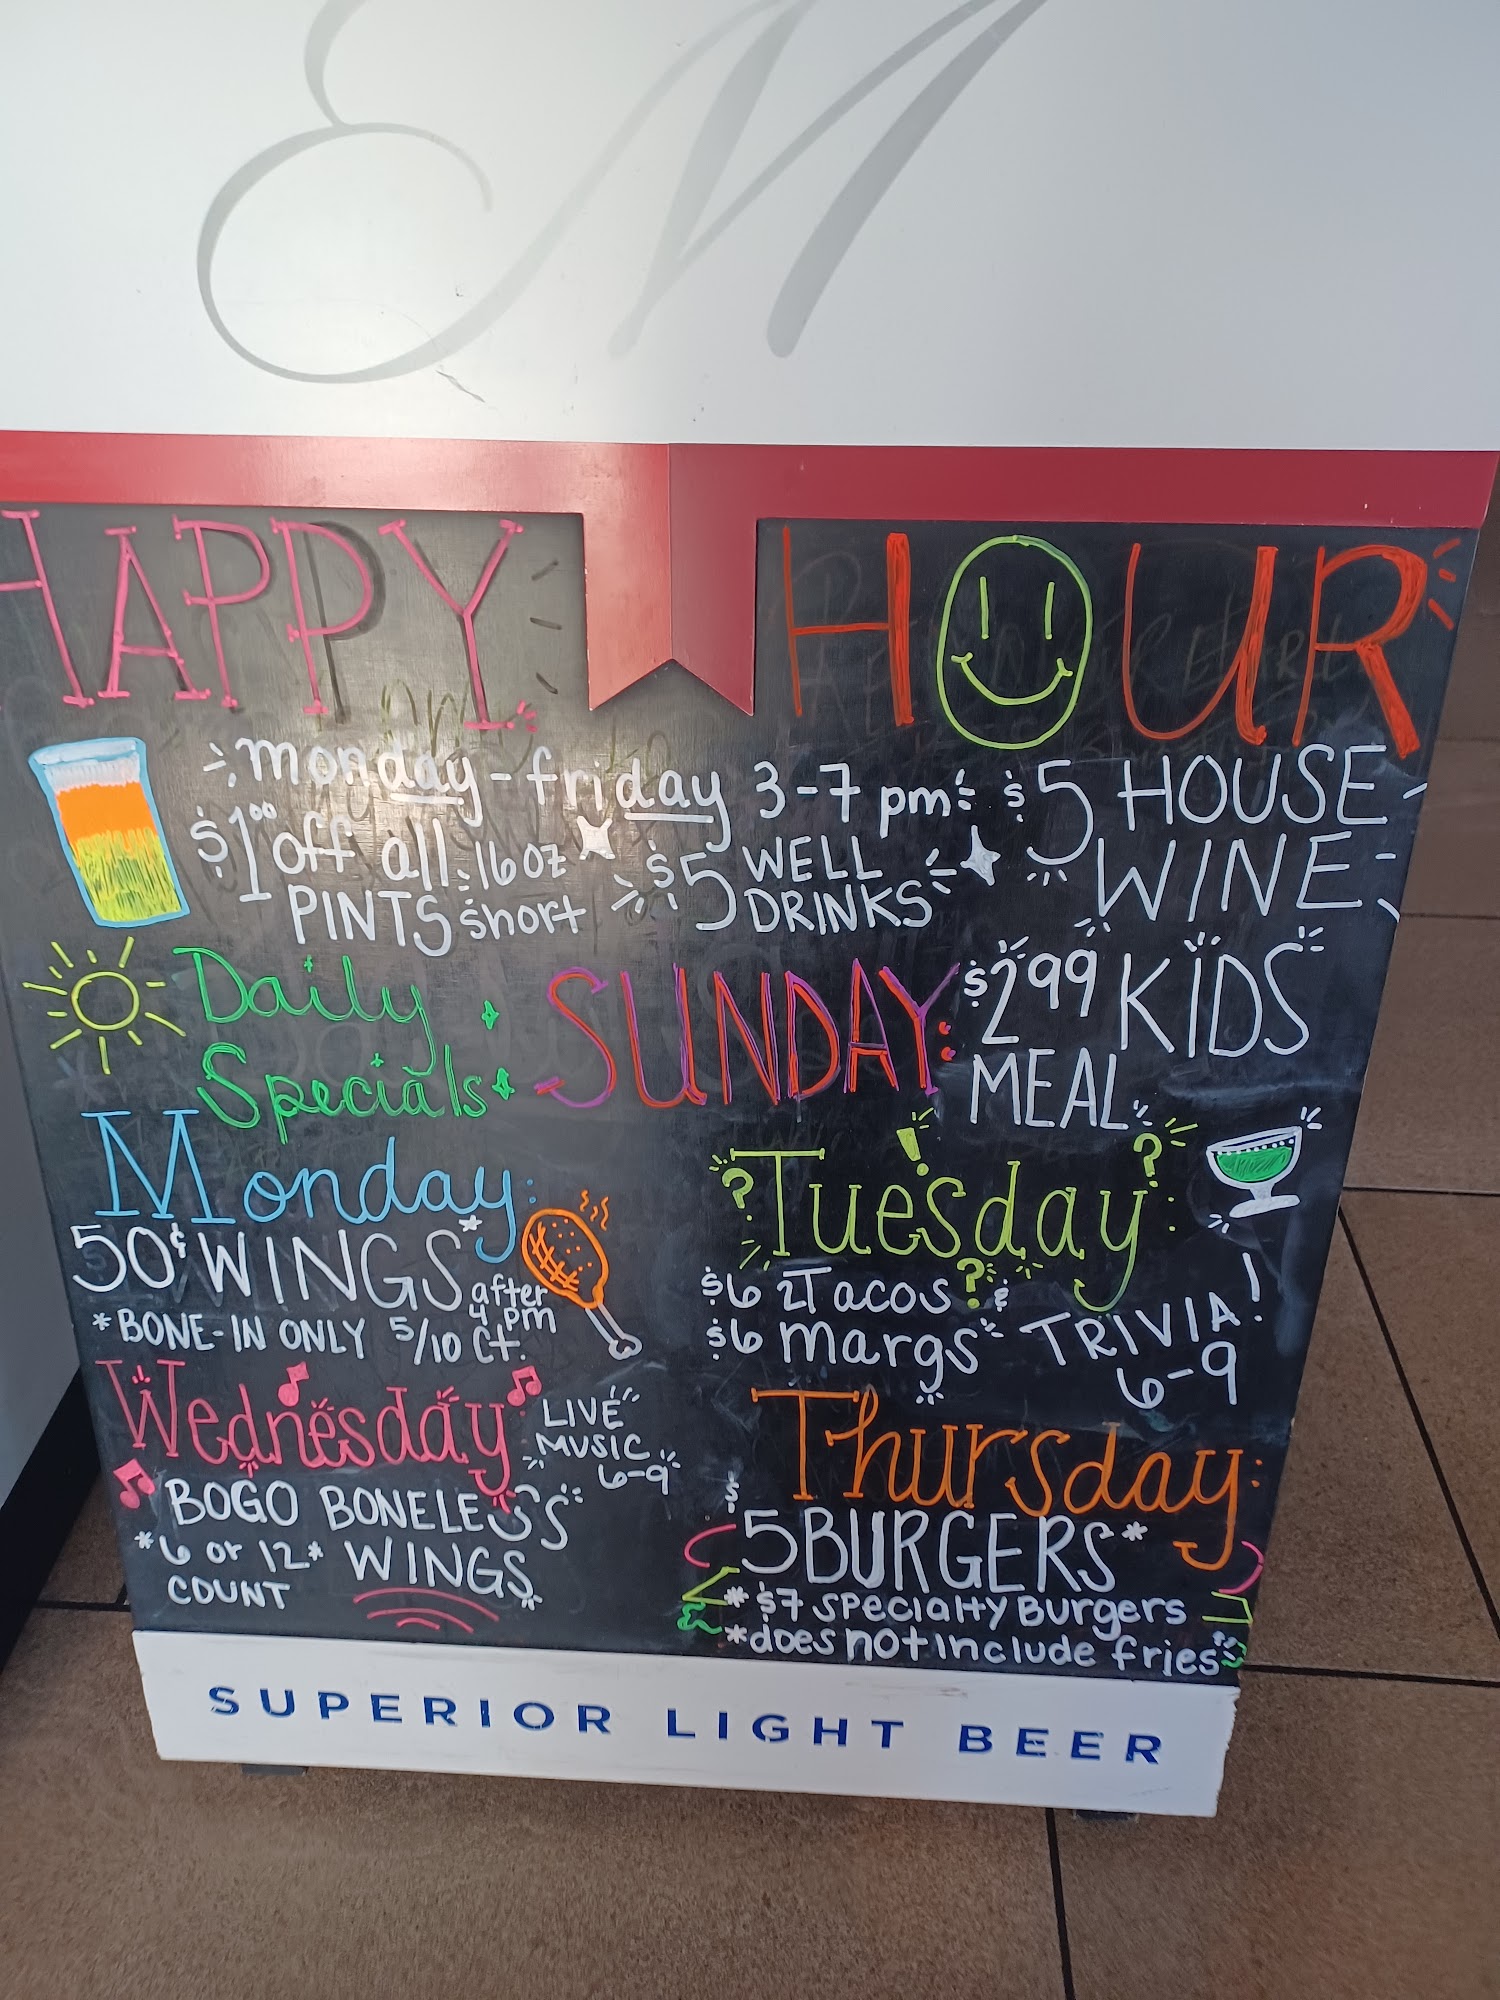 M
HAPPY HOUR
monday-friday 3-7 pm
$1.00 off all 16oz
PINTS short
$5 WELL
DRINKS
$5 HOUSE
WINE
Daily
Specials
SUNDAY: $2.99 KIDS
MEAL
Monday:
50¢ WINGS* after
4 pm
*BONE-IN ONLY 5/10 Ct.
Tuesday:
$6 2 Tacos &
$6 margs
TRIVIA!
6-9
Wednesday
LIVE
MUSIC
6-9
BOGO BONELESS
*6 or 12* WINGS
COUNT
Thursday:
$5 BURGERS*
*$7 specialty Burgers
*does not include fries
SUPERIOR LIGHT BEER